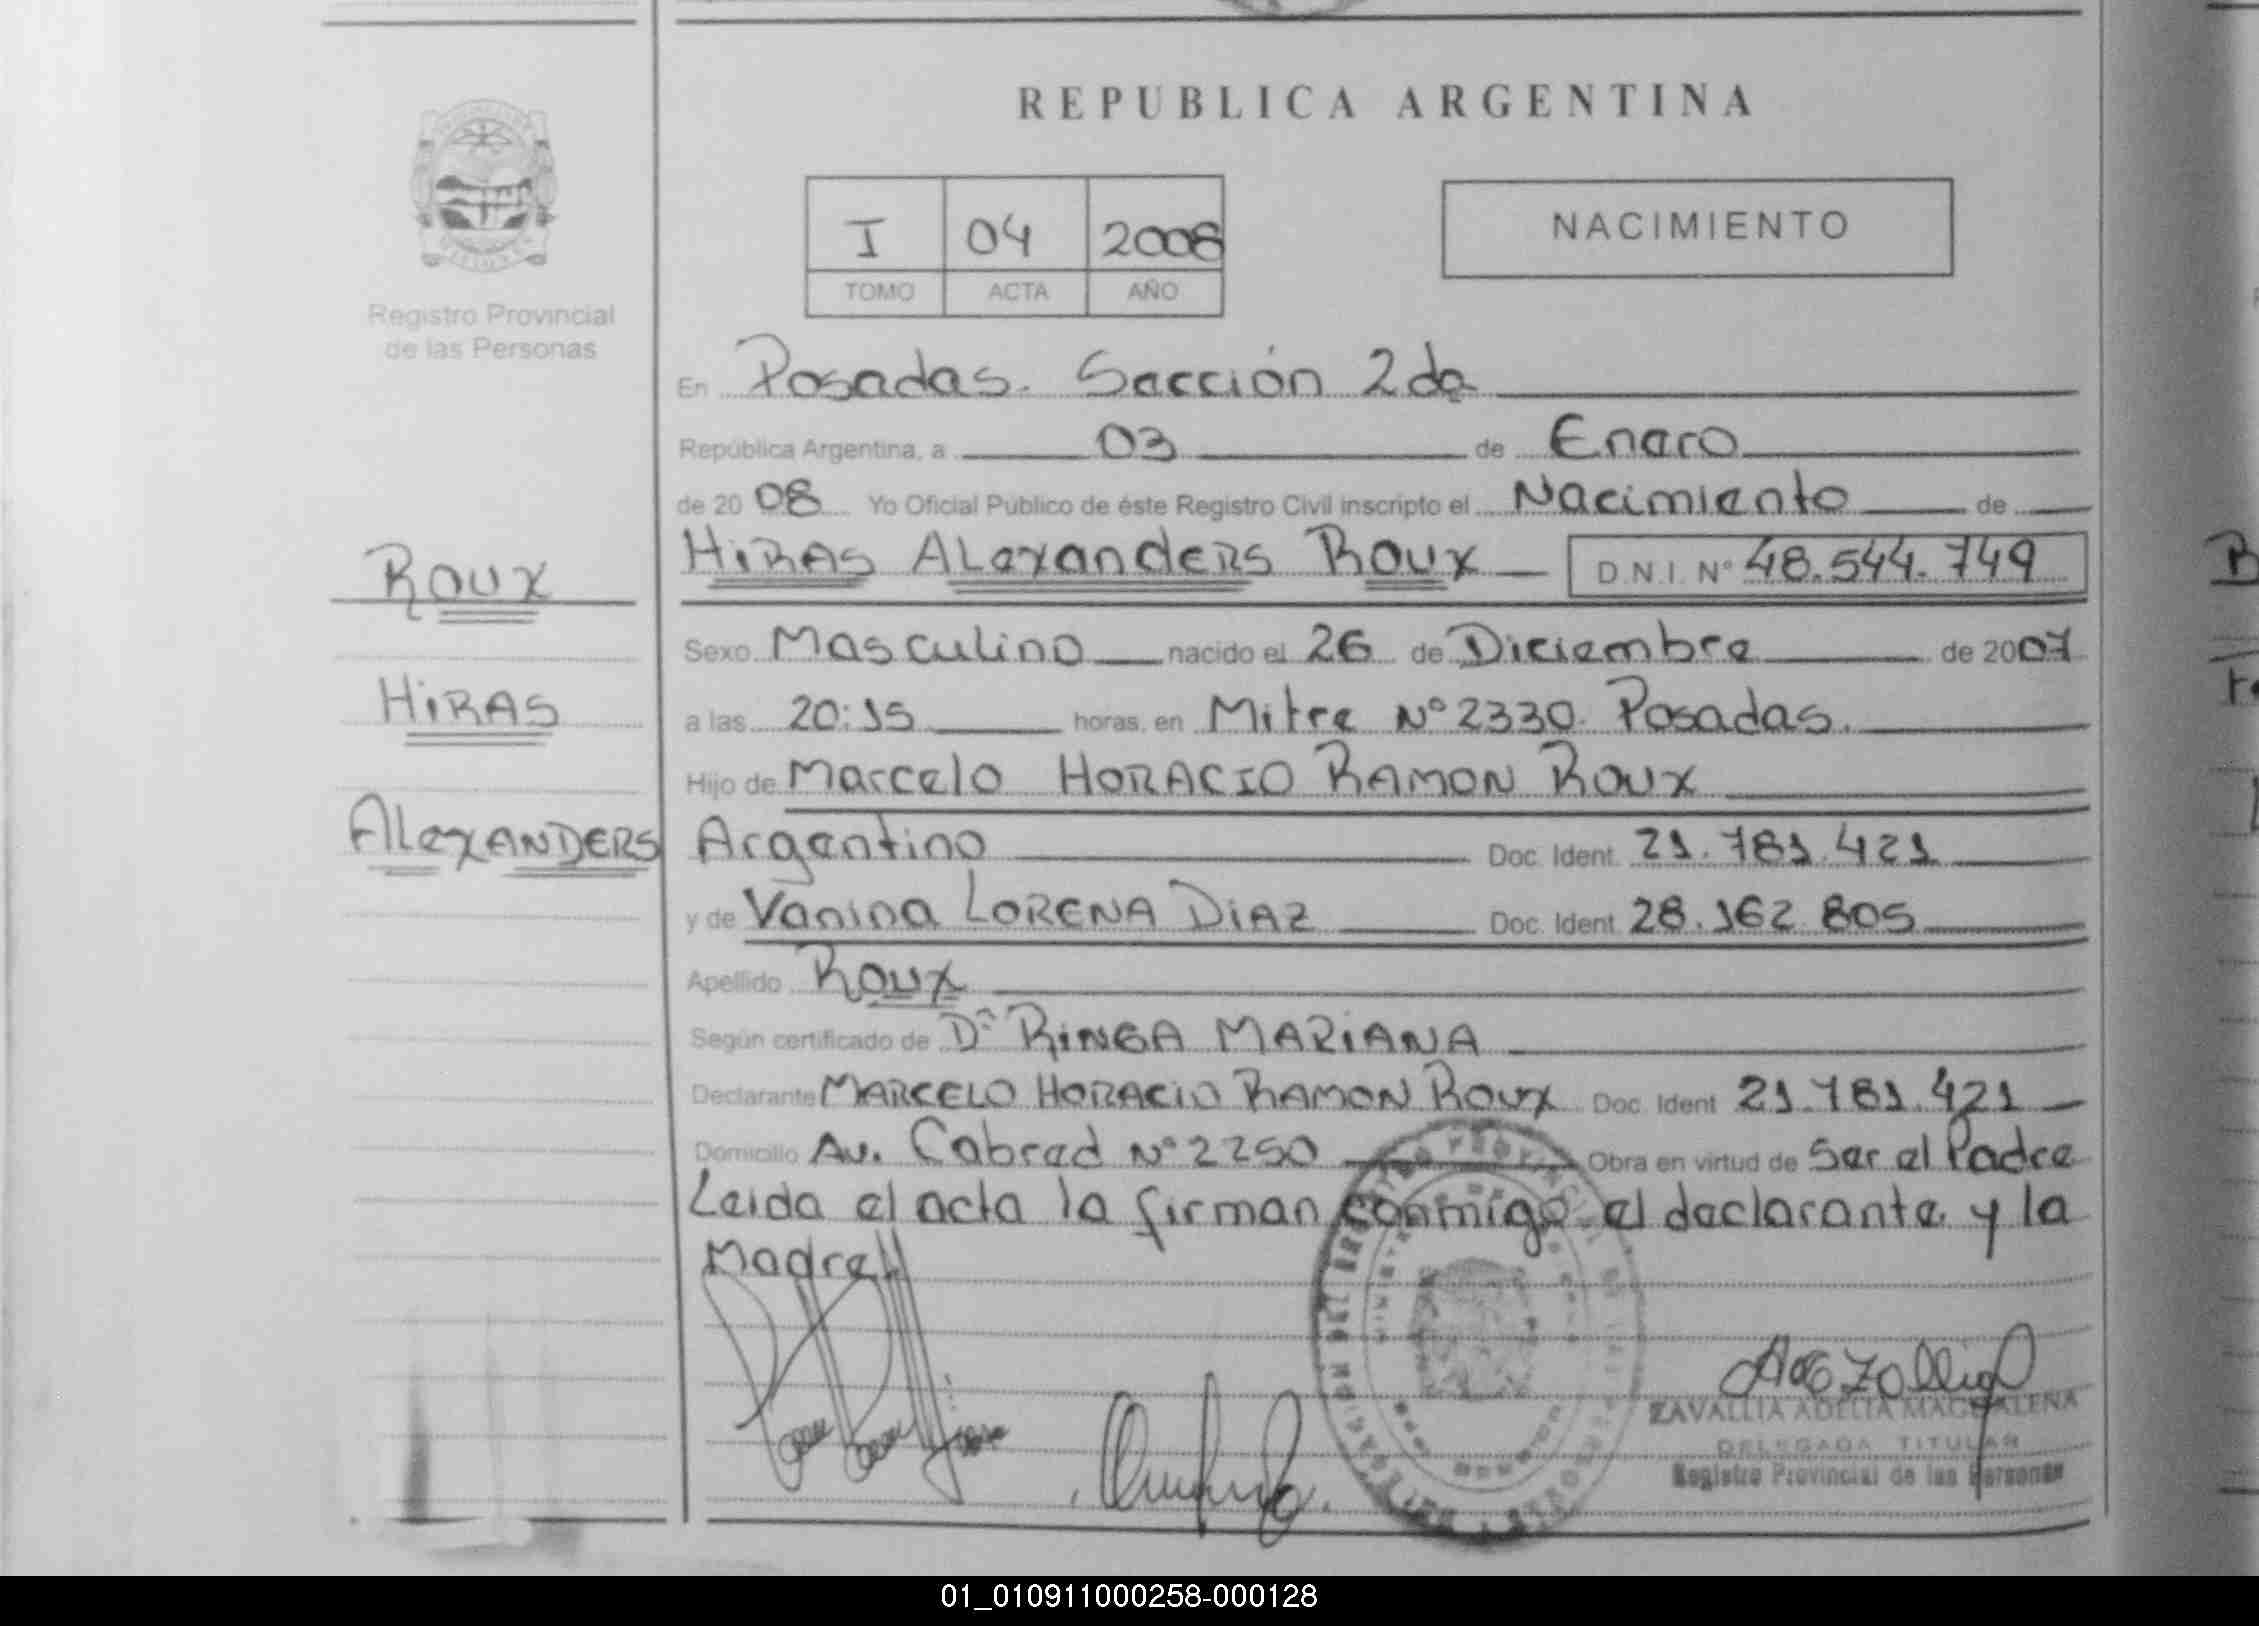 REPUBLICA ARGENTINA
I 04 2008
TOMO ACTA AÑO
NACIMIENTO
Registro Provincial
de las Personas
Roux
HiRAS
ALexANDERS
En Posadas. Sección 2da
República Argentina, a 03 de Enero
de 20 08 Yo Oficial Público de éste Registro Civil inscripto el Nacimiento de
HiRAS ALexanders Roux D.N.I. Nº 48.544.749
Sexo Masculino nacido el 26 de Diciembre de 2007
a las 20:15 horas, en Mitre Nº 2330. Posadas.
Hijo de Marcelo HORACIO RAMON ROUX
Argentino Doc. Ident. 21.781.421
y de Vanina LORENA DiAZ Doc. Ident. 28.162.805
Apellido Roux
Según certificado de Dª RINGA MARIANA
Declarante MARCELO HORACIO RAMON ROUX Doc. Ident. 21.781.421
Domicilio Av. Cabred Nº 2250 Obra en virtud de Ser el Padre
Leida el acta la firman conmigo el declarante y la
Madre
ZAVALLIA ADELIA MAGDALENA
DELEGADA TITULAR
Registro Provincial de las Personas
01_010911000258-000128